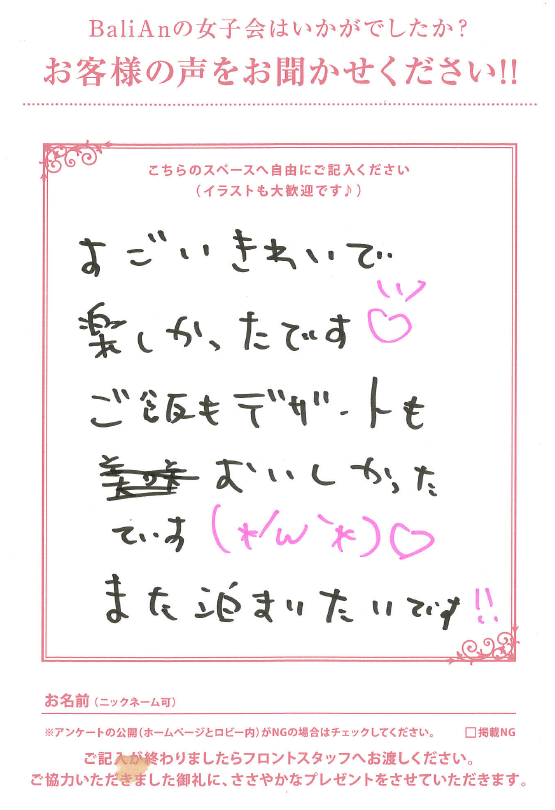 BaliAnの女子会はいかがでしたか?
お客様の声をお聞かせください!!
こちらのスペースへ自由にご記入ください
(イラストも大歓迎です♪)
すごいきれいで
楽しかったです♡
ご飯もデザートも
おいしかった
です(*´ω`*)♡
また泊まりたいです!!
お名前(ニックネーム可)
※アンケートの公開(ホームページとロビー内)がNGの場合はチェックしてください。 □掲載NG
ご記入が終わりましたらフロントスタッフへお渡しください。
ご協力いただきました御礼に、ささやかなプレゼントをさせていただきます。